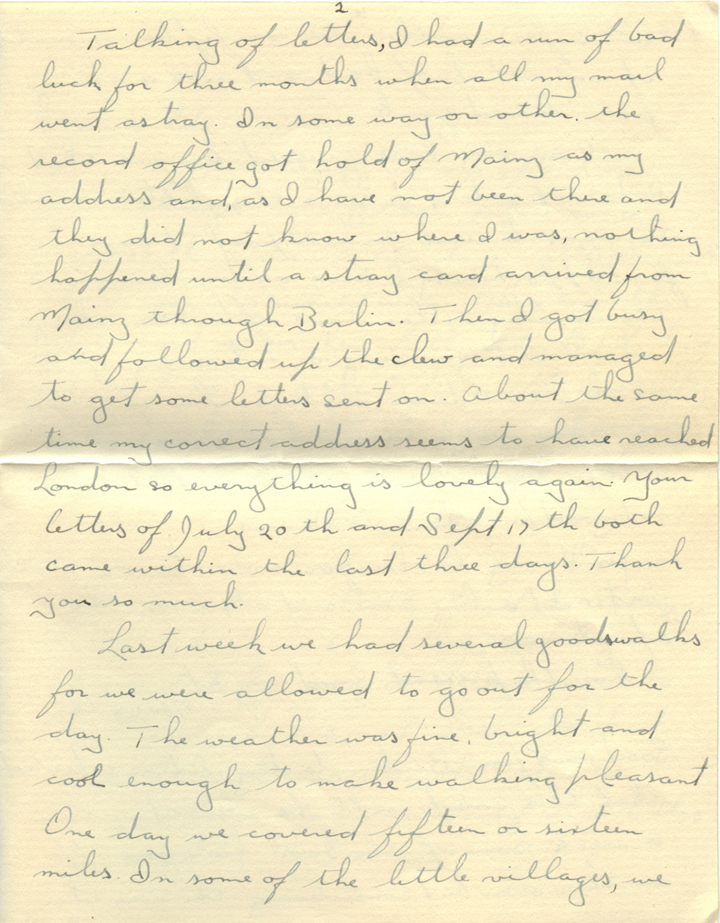 2
Talking of letters, I had a run of bad
luck for three months when all my mail
went astray. In some way or other. the
record office got hold of Mainz as my
address and, as I have not been there and
they did not know where I was, nothing
happened until a stray card arrived from
Mainz through Berlin. Then I got busy
and followed up the clew and managed
to get some letters sent on. About the same
time my correct address seems to have reached
London so everything is lovely again. Your
letters of July 20 th and Sept 17 th both
came within the last three days. Thank
you so much.
Last week we had several good walks
for we were allowed to go out for the
day. The weather was fine, bright and
cool enough to make walking pleasant
One day we covered fifteen or sixteen
miles. In some of the little villages, we